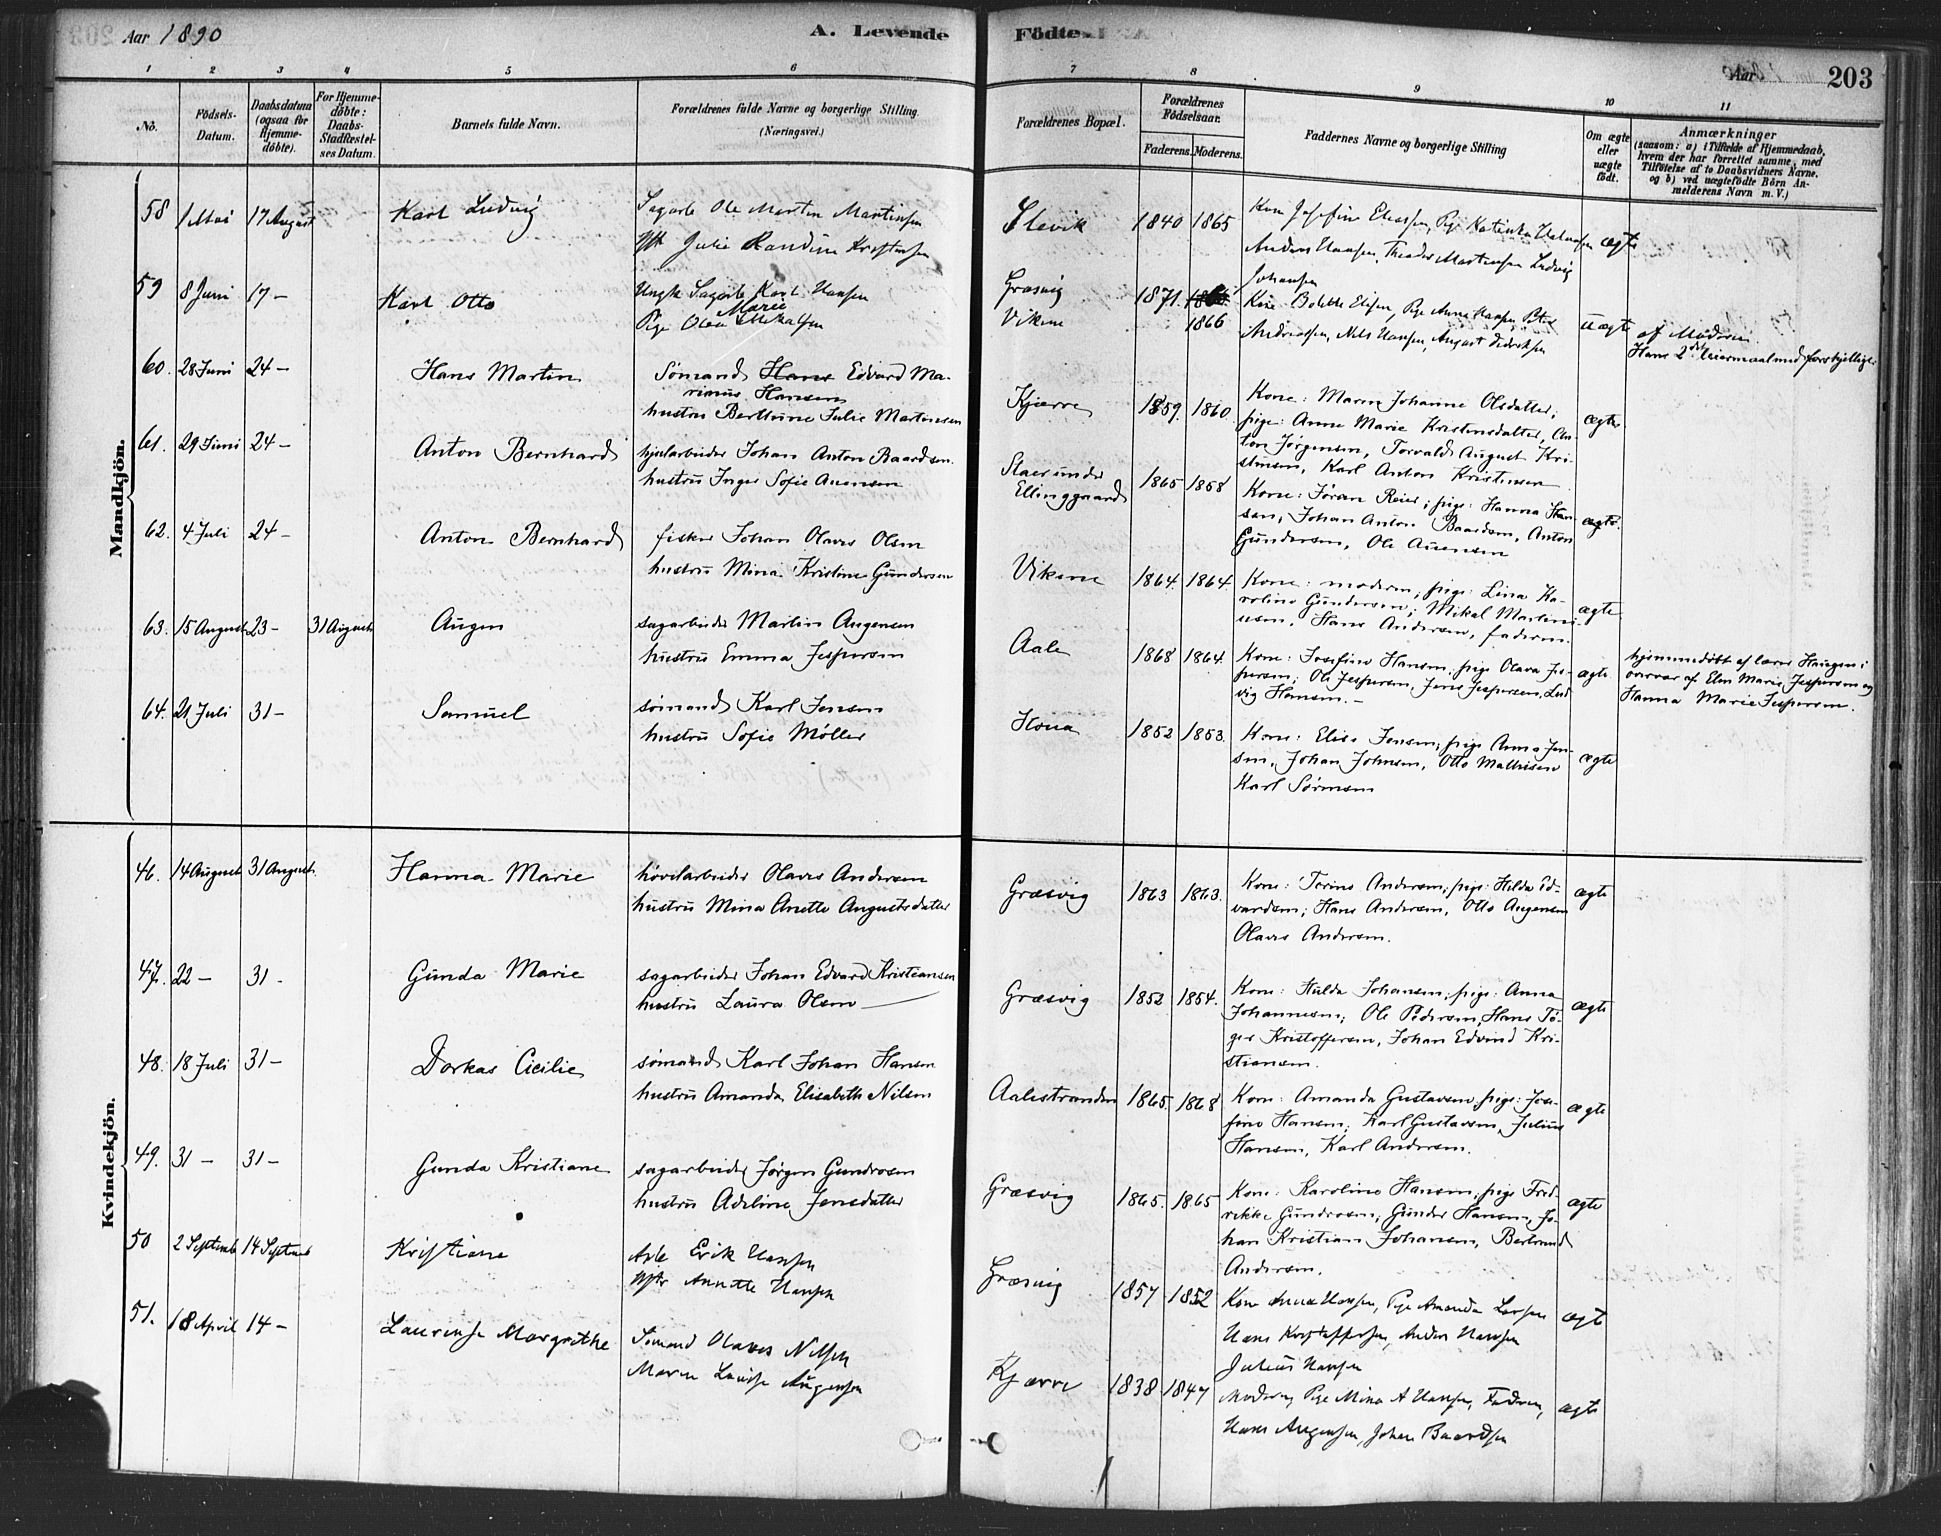 Aar 1890
A. Levende Födte.
Aar 203
1 2 3 4 5 6 7 8 9 10 11
No.
Födsels-Datum.
Daabsdatum (ogsaa for Hjemme-döbte).
For Hjemme-döbte: Daabs-Stadfæstel-ses Datum.
Barnets fulde Navn.
Forældrenes fulde Navne og borgerlige Stilling. (Næringsvei.)
Forældrenes Bopæl.
Forældrenes Födselsaar.
Faderens. Moderens.
Faddernes Navne og borgerlige Stilling
Om ægte eller uægte födt.
Anmærkninger
(saasom: a) i Tilfælde af Hjemmedaab,
hvem der har forrettet samme, med
Tilföielse af to Daabsvidners Navne.
og b) ved uægtefödte Börn An-
melderens Navn m. V.)
Mandkjön.
58 1 Mai 17 August Karl Ludvig
Sagarb Ole Martin Martinsen
Julie Randine Kristensen
Slevik 1840 1865
Kone Josefine Eliassen, Pige Katinka
Anders Hansen, Theodor Martinsen Ludvig
Johansen
ægte
59 8 Juni 17 – Karl Otto
Ungk Sagarb Karl Hansen
Pige Olea Marie
Græsvig
Vikene
1871 1866
Kone Bolette Elisen, Pige Anne Hansen Peter
Andreassen, Nils Hansen, August Didriksen
uægte af Moderen
Hans 2det leiermaal med forskjellige
60. 28 Juni 24 – Hans Martin
Sømand Hans Edvard Ma-
rinius Hansen
hustru Berthine Julie Martinesen
Kjærre 1859. 1860.
Kone: Maren Johanne Olsdatter;
pige: Anne Marie Kristensdatter, An-
ton Jørgensen, Torvald August Kri-
stensen, Karl Anton Kristensen
ægte
61. 29 Juni 24 – Anton Bernhard
hjularbeider Johan Anton Baardsen.
hustru Inger Sofie Auensen
under
Ellinggaard
1865 1858
Kone: Jøran Reier; pige: Hanna Han-
sen, Johan Anton Baardsen, Anton
Gundersen, Ole Auensen
ægte
62. 4 Juli 24 – Anton Bernhard
fisker Johan Olaves Olsen
hustru Mina Kristine Gundersen
Vikene 1864. 1864.
Kone: moderen; pige: Lina Ka-
roline Gundersen; Mikal Martini-
usen, Hans Andersen, faderen.
ægte
63. 15 August 23 – 31 August Augen
sagarbeider Martin Augensen
hustru Emma Jespersen
Aale 1868 1864.
Kone: Josefine Hansen, pige Olava Jes-
persen; Ole Jespersen, Jens Jespersen, Lud-
vig Hansen. –
ægte.
hjemmedøbt af lærer Haugen i
overvær af Elen Marie Jespersen og
Hanna Marie Jespersen.
64. 21 Juli 31 – Samuel
sømand Karl Jensen
hustru Sofie Møller
Hona 1852 1853.
Kone: Elise Jensen; pige Anna Jen-
sen, Johan Johnsen, Otto Mathisen
Karl Sørensen
ægte
Kvindekjön.
46. 14 August 31 August. Hanna Marie
høvelarbeider Olaves Andersen
hustru Mina Anette Augustsdatter
Græsvig 1863 1863.
Kone: Torine Andersen; pige: Hilda Ed-
vardsen; Hans Andersen, Otto Augensen
Olaves Andersen.
ægte
47. 22 – 31 – Gunda Marie
sagarbeider Johan Edvard Kristiansen
hustru Laura Olsen –
Græsvig 1852 1854.
Kone: Hulda Johansen; pige: Anna
Johannesen; Ole Pedersen, Hans Tø-
ger Kristoffersen, Johan Edvind Kri-
stiansen.
ægte
48. 18 Juli 31 – Dorkas Cicilie
sømand Karl Johan Hansen
hustru Amanda Elisabeth Nilsen
Aalestranden 1865. 1868
Kone: Amanda Gustavsen, pige: Jose-
fine Hansen; Karl Gustavsen, Julius
Hansen, Karl Andersen.
ægte
49. 31 – 31 – Gunda Kristiane
sagarbeider Jørgen Gundrosen
hustru Adeline Jensdatter
Græsvig 1865. 1865
Kone: Karoline Hansen, pige Fred-
rikke Gundrosen; Gunder Hansen, Jo-
han Kristian Johansen, Bertrand
Andersen.
ægte
50 2 Septemb 14 Septemb Kristiane
Arb Erik Hansen
Annette Hansen
Græsvig 1857 1852
Kone Anna Hansen, Pige Amanda Larsen
Hans Kristoffersen, Anders Hansen
Julius Hansen
ægte
51. 18 April 14 – Laurense Margrethe
Sømand Olaves Nilsen
Maren Lovise Augensen
Kjærre 1838 1847
Moderen, Pige Mina A Hansen, Faderen,
Hans Augensen, Johan Baardsen
ægte